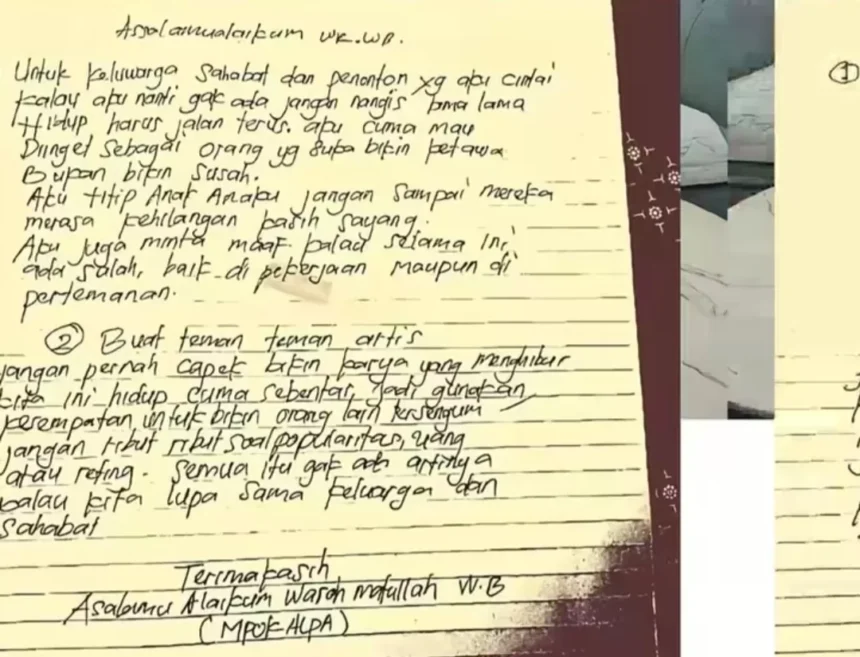 Assalamualaikum WR.WB.
Untuk keluwarga Sahabat dan penonton yg aku cintai
kalau aku nanti gak ada jangan nangis lama lama
Hidup harus jalan terus. aku cuma mau
Diinget Sebagai orang yg suka bikin ketawa
Bukan bikin susah.
Aku titip Anak Anaku jangan Sampai mereka
merasa kehilangan kasih sayang.
Aku juga minta maaf kalau selama ini,
ada salah, baik di pekerjaan maupun di
pertemanan.
② Buat teman teman artis
jangan pernah capek bikin karya yang menghibur
kita ini hidup cuma sebentar, jadi gunakan
kesempatan untuk bikin orang lain tersengum
jangan ribut ribut soal popularitas, uang
atau reting. Semua itu gak ada artinya
kalau kita lupa sama keluarga dan
Sahabat
Terimakasih
Asalamu Alaikum Warah matullah W.B
(MPOK ALPA)
①